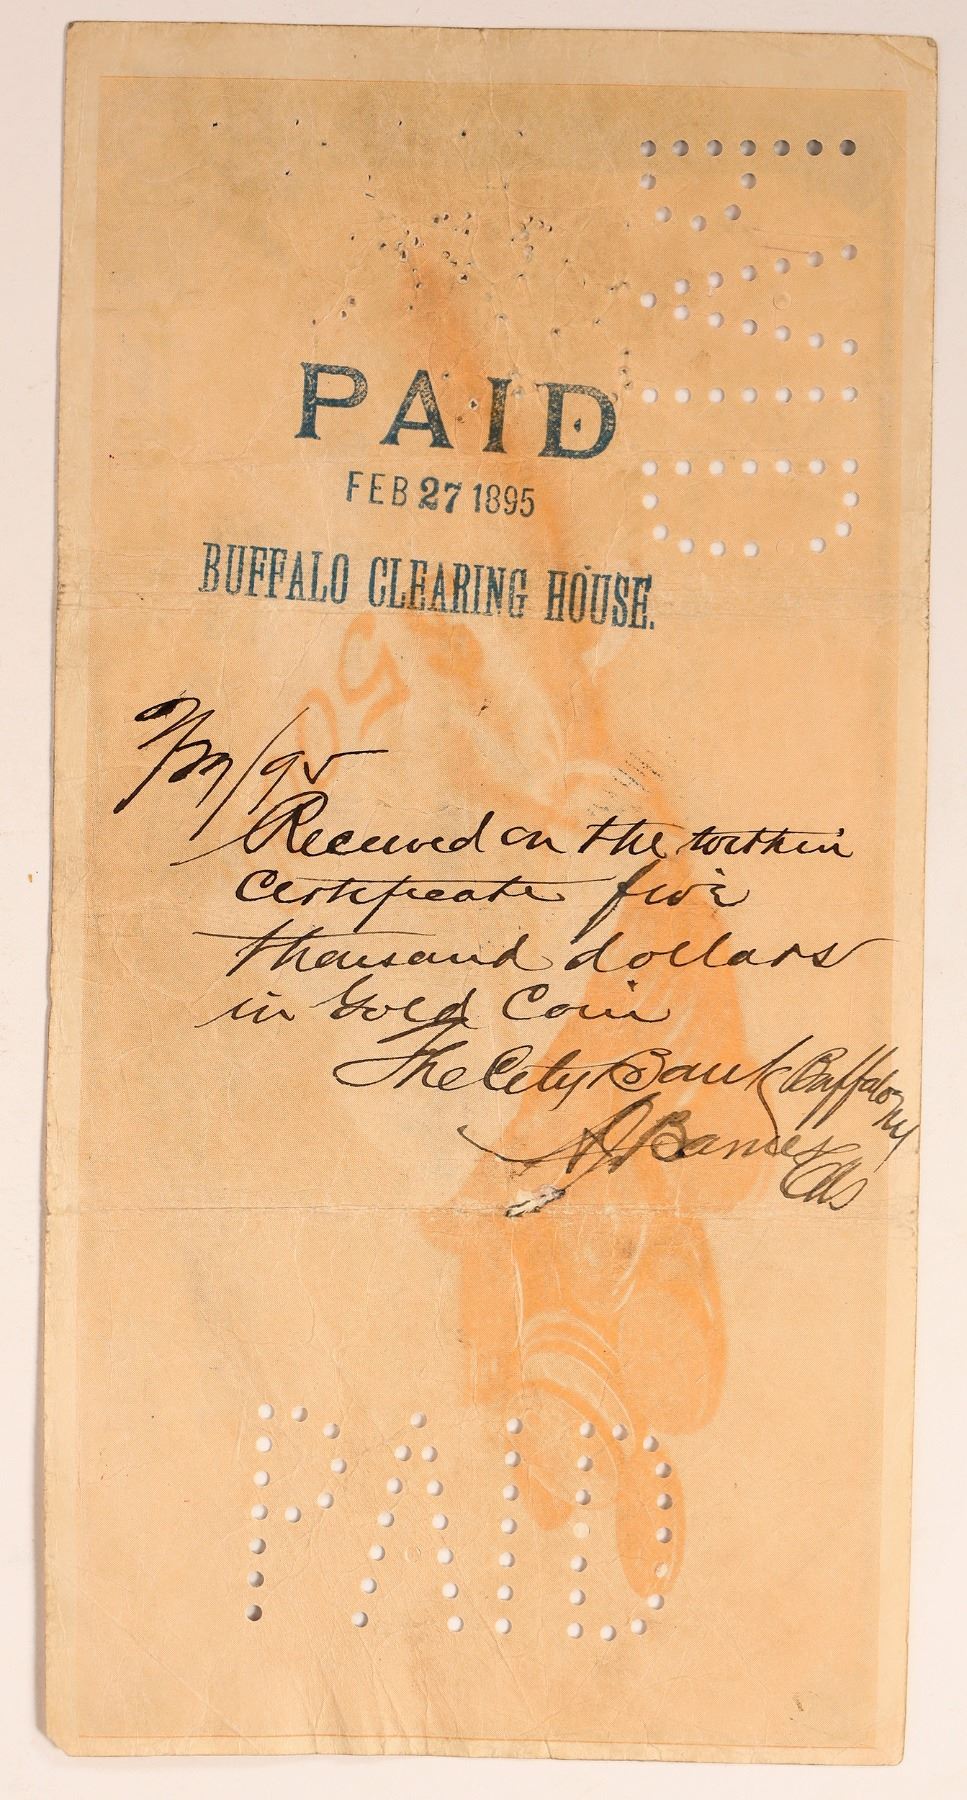 PAID
FEB 27 1895
BUFFALO CLEARING HOUSE.
PAID
50
2/27/95
Received on the within
Certificate five
thousand dollars
in Gold Coin
The City Bank Buffalo NY
Barnes
PAID